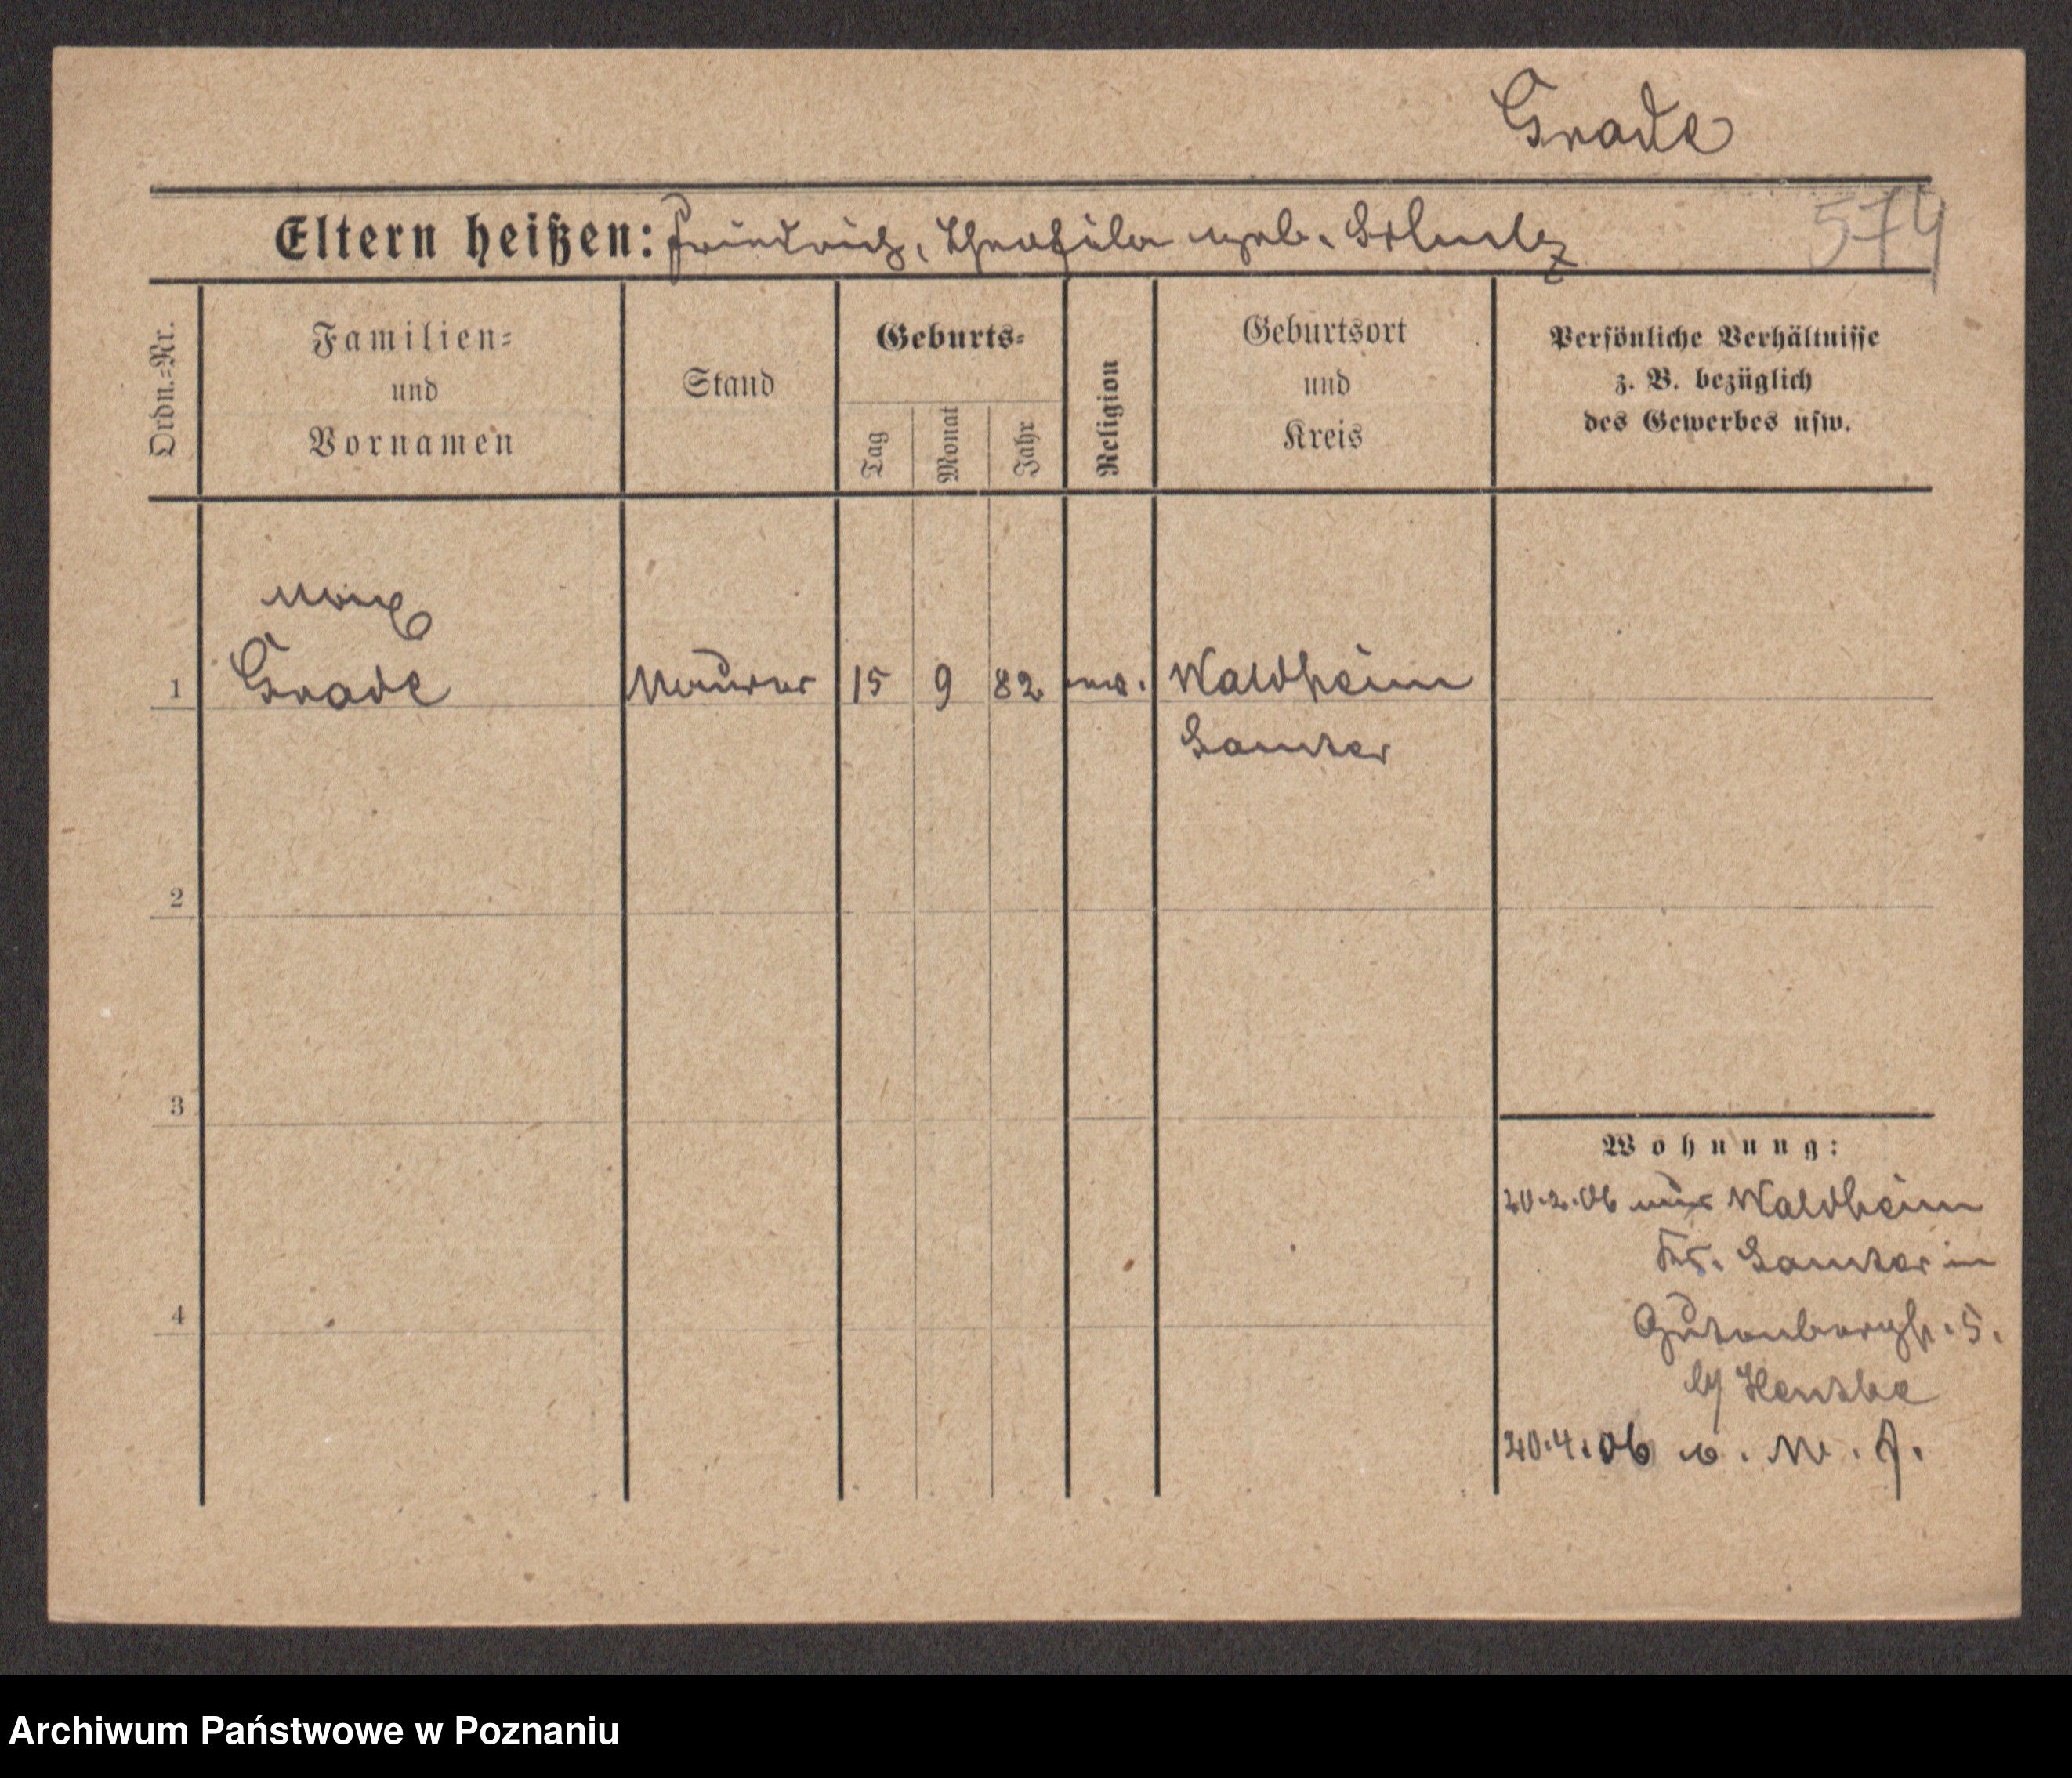 Grade
574
Eltern heißen: Friedrich, Theofila geb. Schulz
Ordn.=Nr.
Familien=
und
Vornamen
Stand
Geburts=
Tag
Monat
Jahr
Religion
Geburtsort
und
Kreis
Persönliche Verhältnisse
z. B. bezüglich
des Gewerbes usw.
Max
1 Grade Maurer 15 9 82 ev. Waldheim
Samter
2
3
4
Wohnung:
20.2.06 aus Waldheim
Kr. Samter in
Gutenbergstr. 5.
b/
20.4.06
Archiwum Państwowe w Poznaniu